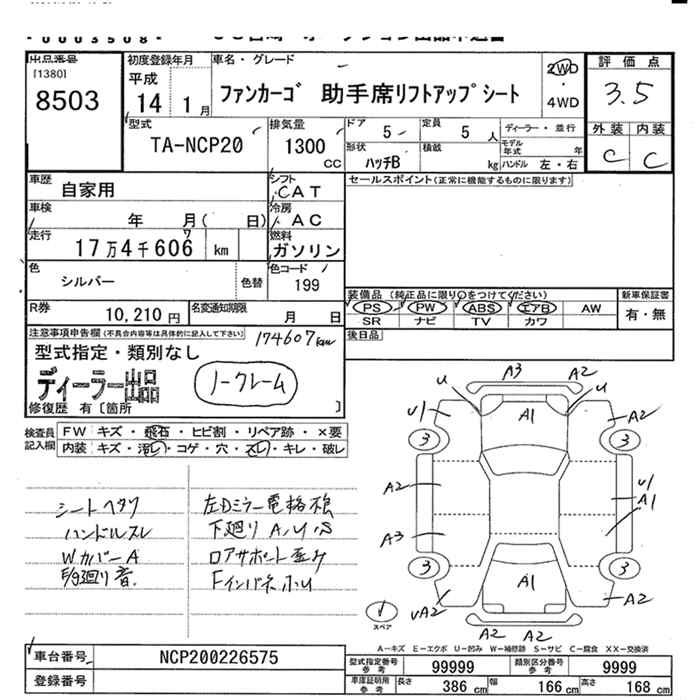 出品番号
[1380]
8503
初度登録年月
平成
14 1 月
車名・グレード
ファンカーゴ 助手席リフトアップシート
2WD
・
4WD
評価点
3.5
外装 内装
C C
型式
TA-NCP20
排気量
1300
CC
ドア
5
定員
5 人
ディーラー・並行
形状
ハッチB
積載
kg
モデル
年式 年
ハンドル 左・右
車歴
自家用
シフト
CAT
セールスポイント(正常に機能するものに限ります)
車検
年 月( 日)
冷房
AC
走行
17万4千606 km
7
燃料
ガソリン
色
シルバー
色替
色コード
199
装備品 (純正品に限り○をつけてください)
PS PW ABS エアB AW
SR ナビ TV カワ
新車保証書
有・無
R券
10,210 円
名変通知期限
月 日
後日品
注意事項申告欄(不具合内容等は具体的に記入して下さい)
174607km
型式指定・類別なし
ディーラー出品
ノークレーム
修復歴 有〔箇所 〕
検査員
記入欄
FW キズ・飛石・ヒビ割・リペア跡・×要
内装 キズ・汚レ・コゲ・穴・スレ・キレ・破レ
シートヘタリ
ハンドルスレ
WカバーA
左Dミラー電格
下廻りA,U,S
ロアサポート歪み
Fインパネホル
A3 A2
U U
U1 A1 A2
3 3
A2 U1
A1
A3
3 3
A1
UA2 A2
A2 A2
スペア
A-キズ E-エクボ U-凹み W-補修跡 S-サビ C-腐食 XX-交換済
車台番号
NCP200226575
登録番号
型式指定番号
参考
99999
類別区分番号
参考
9999
車庫証明用
参考
長さ
386 cm
幅
166 cm
高さ
168 cm